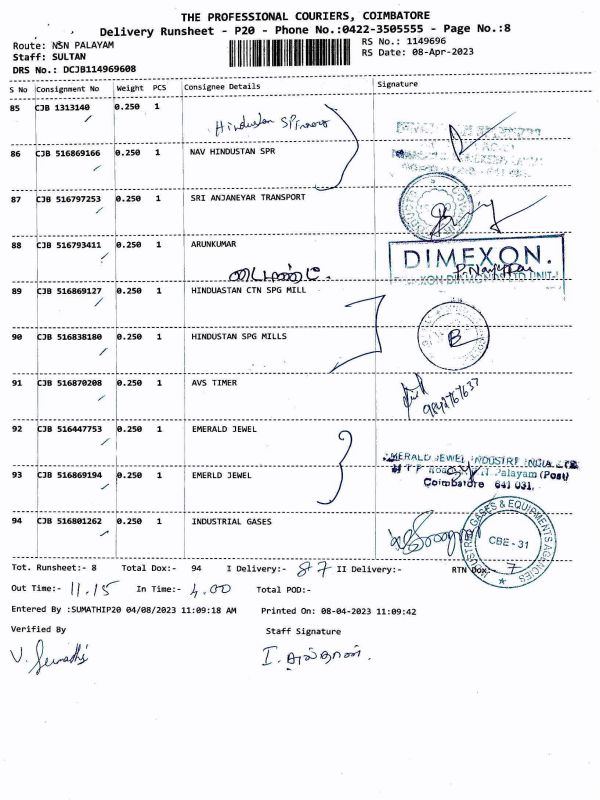 THE PROFESSIONAL COURIERS, COIMBATORE
Delivery Runsheet - P20 - Phone No.:0422-3505555 - Page No.:8
Route: NSN PALAYAM
RS No.: 1149696
Staff: SULTAN
RS Date: 08-Apr-2023
DRS No.: DCJB114969608
S No Consignment No Weight PCS Consignee Details Signature
85 CJB 1313140 0.250 1
Hindustan Spinners
86 CJB 516869166 0.250 1 NAV HINDUSTAN SPR
87 CJB 516797253 0.250 1 SRI ANJANEYAR TRANSPORT
88 CJB 516793411 0.250 1 ARUNKUMAR
DIMEXON.
89 CJB 516869127 0.250 1 HINDUASTAN CTN SPG MILL
90 CJB 516838180 0.250 1 HINDUSTAN SPG MILLS
B
91 CJB 516870208 0.250 1 AVS TIMER
92 CJB 516447753 0.250 1 EMERALD JEWEL
EMERALD JEWEL INDUSTRY INDIA LTD
93 CJB 516869194 0.250 1 EMERLD JEWEL
Palayam (Post)
Coimbatore 641 031.
94 CJB 516801262 0.250 1 INDUSTRIAL GASES
INDUSTRIAL GASES & EQUIPMENTS AGENCIES
CBE - 31
Tot. Runsheet:- 8 Total Dox:- 94 I Delivery:- 87 II Delivery:- RTN Dox:- 7
Out Time:- 11.15 In Time:- 4.00 Total POD:-
Entered By :SUMATHIP20 04/08/2023 11:09:18 AM Printed On: 08-04-2023 11:09:42
Verified By Staff Signature
V. Sumathi